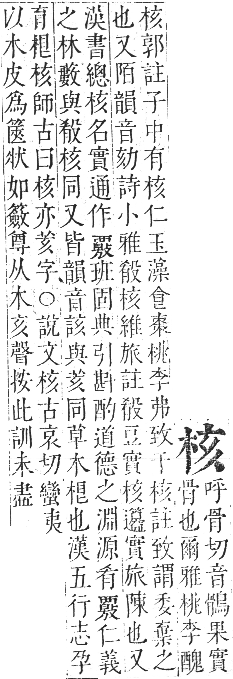 核
呼骨切音鶻果實
骨也爾雅桃李醜
核郭註子中有核仁玉藻食棗桃李弗致于核註致謂委棄之
也又陌韻音劾詩小雅殽核維旅註殽豆實核籩實旅陳也又
漢書總核名實通作覈班固典引斟酌道德之淵源肴覈仁義
之林藪與殽核同又皆韻音該與荄同草木根也漢五行志孕
育根核師古曰核亦荄字○說文核古哀切蠻夷
以木皮爲篋狀如籢尊从木亥聲按此訓未盡